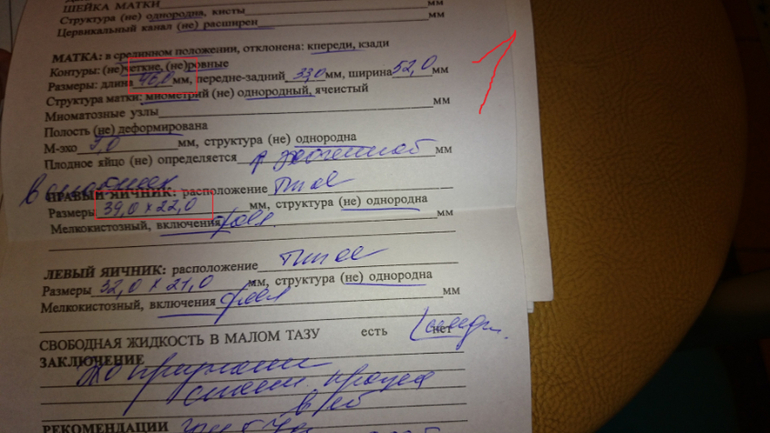 ШЕЙКА МАТКИ
Структура (не) однородна, кисты мм
Цервикальный канал (не) расширен
МАТКА: в срединном положении, отклонена: кпереди, кзади
Контуры: (не)четкие, (не)ровные
Размеры: длина 46,0 мм, передне-задний 33,0 мм, ширина 52,0 мм
Структура матки: миометрий (не) однородный, ячеистый
Миоматозные узлы мм
Полость (не) деформирована
М-эхо 5,0 мм, структура (не) однородна
Плодное яйцо (не) определяется мм
ПРАВЫЙ ЯИЧНИК: расположение типов
Размеры 39,0 х 22,0 мм, структура (не) однородна
Мелкокистозный, включения фолл мм
ЛЕВЫЙ ЯИЧНИК: расположение типов
Размеры 32,0 х 21,0 мм, структура (не) однородна
Мелкокистозный, включения фолл мм
СВОБОДНАЯ ЖИДКОСТЬ В МАЛОМ ТАЗУ есть нет
ЗАКЛЮЧЕНИЕ
Эхо признаки
спаечн. процесса
РЕКОМЕНДАЦИИ